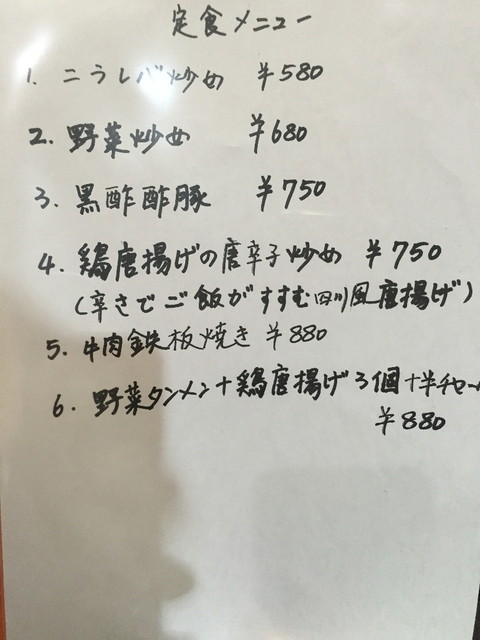 定食メニュー
1. ニラレバ炒め ¥580
2. 野菜炒め ¥680
3. 黒酢酢豚 ¥750
4. 鶏唐揚げの唐辛子炒め ¥750
(辛さでご飯がすすむ四川風唐揚げ)
5. 牛肉鉄板焼き ¥880
6. 野菜タンメン+鶏唐揚げ3個+半チャー
¥880